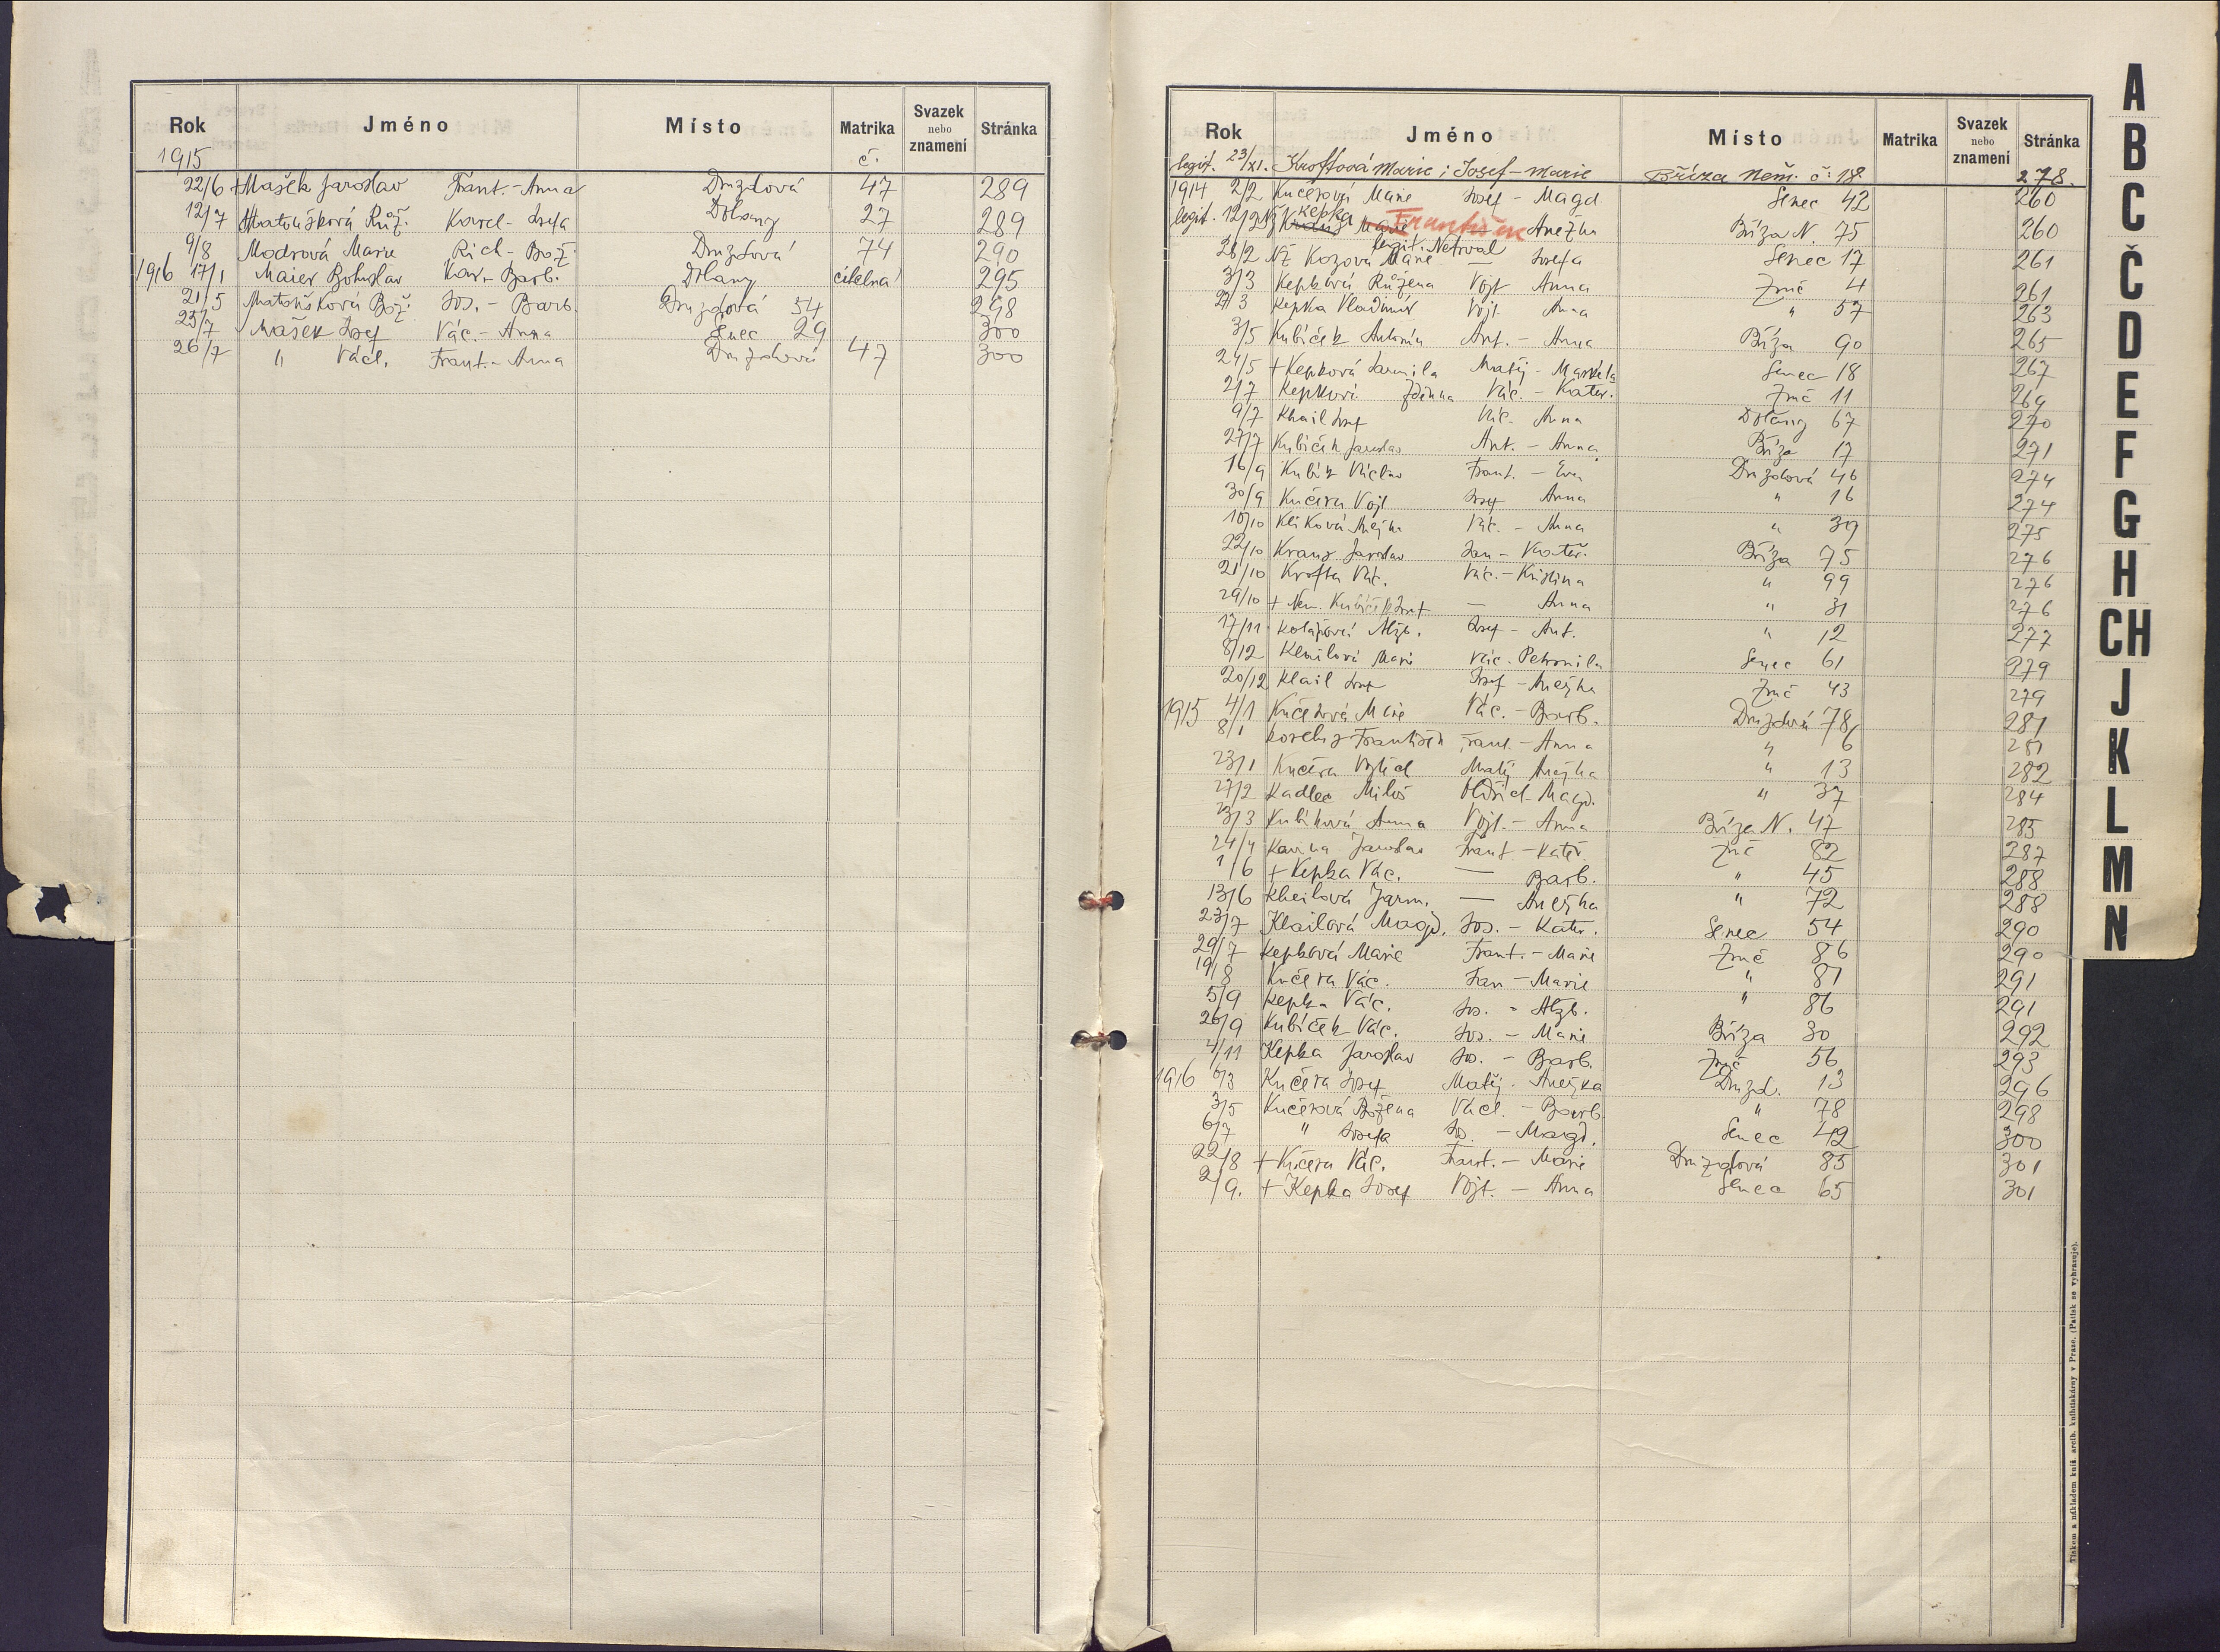 Rok Jméno Místo Matrika Svazek nebo znamení Stránka
1915 č.
22/6 + Mašek Jaroslav Frant. - Anna Druzdová 47 289
12/7 Matoušková Růž. Karel - Josefa Dolany 27 289
9/8 Modrová Marie Rich - Bož. Druzdová 74 290
1916 17/1 Maier Bohuslav Kar. - Barb. Dolany cihelna 295
21/5 Matoušková Bož. Jos. - Barb. Druzdová 54 298
25/7 Mašek Josef Vác. - Anna Senec 29 300
26/7 " Václ. Frant. - Anna Druzdová 47 300
Rok Jméno Místo Matrika Svazek nebo znamení Stránka
legit. 23/XI. Kroftová Marie; Josef - Marie Bříza Něm. č: 18 278.
1914 2/2 Kučerová Marie Josef - Magd. Senec 42 260
legit. 12/2 Kepka František Anežka Bříza N. 75 260
legit. Netrval
28/2 Nž Kozová Marie — Josefa Senec 17 261
3/3 Kepková Růžena Vojt Anna Zruč 4 261
27/3 Kepka Vladimír Vojt. Anna " 57 263
3/5 Kubíček Antonín Ant. - Anna Bříza 90 265
24/5 + Kepková Jarmila Matěj - Markéta Senec 18 267
2/7 Kepková Zdenna Vác. - Kateř. Zruč 11 269
9/7 Khail Josef Vác. Anna Dolany 67 270
27/7 Kubíček Jaroslav Ant. - Anna Bříza 17 271
16/9 Kubík Václav Frant. - Eva Druzdová 46 274
30/9 Kučera Vojt Josef Anna " 16 274
10/10 Kliková Anežka Vác. - Anna " 39 275
22/10 Kranz Jaroslav Jan - Kateř. Bříza 75 276
21/10 Krofta Vác. Vác. - Kristina " 99 276
29/10 + Nem. Kubíček Josef — Anna " 31 276
17/11 Kolářová Alžb. Josef - Ant. " 12 277
8/12 Khailová Marie Vác. Petronila Senec 61 279
20/12 Khail Josef Josef - Anežka Zruč 43 279
1915 4/1 Kučerová Marie Vác. - Barb. Druzdová 78 281
8/1 František Frant. - Anna " 6 281
23/1 Kučera Vojtěch Matěj Anežka " 13 282
27/2 Kadlec Miloš Oldřich - Magd. " 37 284
3/3 Kubíková Anna Vojt. - Anna Bříza N. 47 285
24/4 Jaroslav Frant. - Kateř. Zruč 82 287
1/6 + Kepka Vác. — Barb. " 45 288
13/6 Kheilová Jarm. — Anežka " 72 288
23/7 Khailová Magd. Jos. - Kateř. Senec 54 290
29/7 Kepková Marie Frant. - Marie Zruč 86 290
19/8 Kučera Vác. Jan - Marie " 81 291
5/9 Kepka Vác. Jos. - Alžb. " 86 291
26/9 Kubíček Vác. Jos. - Marie Bříza 30 292
4/11 Kepka Jaroslav Jos. - Barb. Zruč 56 293
1916 6/3 Kučera Josef Matěj. Anežka Druzd. 13 296
3/5 Kučerová Božena Václ. - Barb. " 78 298
6/7 " Josefa Jos. - Magd. Senec 42 300
22/8 + Kučera Vác. Frant. - Marie Druzdová 85 301
2/9. + Kepka Josef Vojt. - Anna Senec 65 301
A
B
C
Č
D
E
F
G
H
CH
J
K
L
M
N
Tiskem a nákladem kníž. arcib. knihtiskárny v Praze. (Patisk se vyhrazuje).